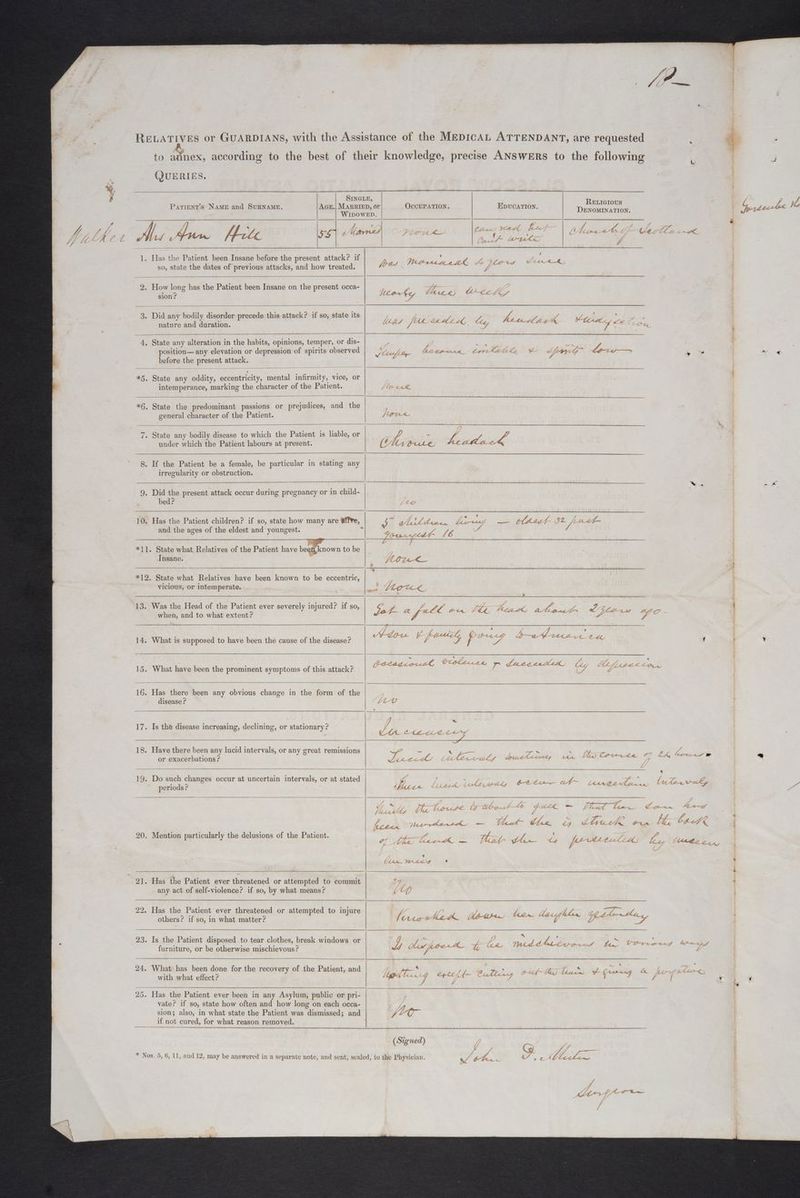 12
RELATIVES or GUARDIANS, with the Assistance of the MEDICAL ATTENDANT, are requested
to annex, according to the best of their knowledge, precise ANSWERS to the following
QUERIES.
PATIENT'S NAME and SURNAME. AGE. SINGLE, MARRIED, or WIDOWED. OCCUPATION. EDUCATION. RELIGIOUS DENOMINATION.
Walker Mrs Ann Hill 55 Married none can read but can't write Church of Scotland
1. Has the Patient been Insane before the present attack? if
so, state the dates of previous attacks, and how treated.
was maniacal years since
2. How long has the Patient been Insane on the present occa-
sion?
nearly three weeks
3. Did any bodily disorder precede this attack? if so, state its
nature and duration.
was preceded by headach & indigestion
4. State any alteration in the habits, opinions, temper, or dis-
position—any elevation or depression of spirits observed
before the present attack.
Temper became irritable & spirits low
*5. State any oddity, eccentricity, mental infirmity, vice, or
intemperance, marking the character of the Patient.
None
*6. State the predominant passions or prejudices, and the
general character of the Patient.
None
7. State any bodily disease to which the Patient is liable, or
under which the Patient labours at present.
Chronic headach
8. If the Patient be a female, be particular in stating any
irregularity or obstruction.
9. Did the present attack occur during pregnancy or in child-
bed?
no
10. Has the Patient children? if so, state how many are alive,
and the ages of the eldest and youngest.
5 children living — oldest 32 past
youngest 16
*11. State what Relatives of the Patient have been known to be
Insane.
None
*12. State what Relatives have been known to be eccentric,
vicious, or intemperate.
None
13. Was the Head of the Patient ever severely injured? if so,
when, and to what extent?
Got a fall on the head about 2 years ago
14. What is supposed to have been the cause of the disease?
A son & family going to America
15. What have been the prominent symptoms of this attack?
occasional violence & succeeded by depression
16. Has there been any obvious change in the form of the
disease?
No
17. Is the disease increasing, declining, or stationary?
Increasing
18. Have there been any lucid intervals, or any great remissions
or exacerbations?
Lucid intervals sometimes in the course of 24 hours
19. Do such changes occur at uncertain intervals, or at stated
periods?
These lucid intervals occur at uncertain intervals
20. Mention particularly the delusions of the Patient.
Thinks the house is about to fall — that her son has
been murdered — that she is struck on the back
of the head — that she is persecuted by unseen
enemies
21. Has the Patient ever threatened or attempted to commit
any act of self-violence? if so, by what means?
No
22. Has the Patient ever threatened or attempted to injure
others? if so, in what matter?
Knocked down her daughter yesterday
23. Is the Patient disposed to tear clothes, break windows or
furniture, or be otherwise mischievous?
Is disposed to be mischievous in various ways
24. What has been done for the recovery of the Patient, and
with what effect?
Nothing except cutting out the hair & giving a purgative
25. Has the Patient ever been in any Asylum, public or pri-
vate? if so, state how often and how long on each occa-
sion; also, in what state the Patient was dismissed; and
if not cured, for what reason removed.
No
(Signed)
* Nos. 5, 6, 11, and 12, may be answered in a separate note, and sent, sealed, to the Physician.
John
Surgeon